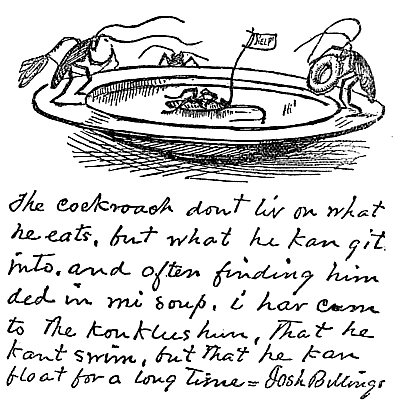 HELP
Hi!
The cockroach dont liv on what
he eats, but what he kan git
into. and often finding him
ded in mi soup, i hav cum
to The konklushun, That he
kant swim, but That he kan
float for a long Time = Josh Billings